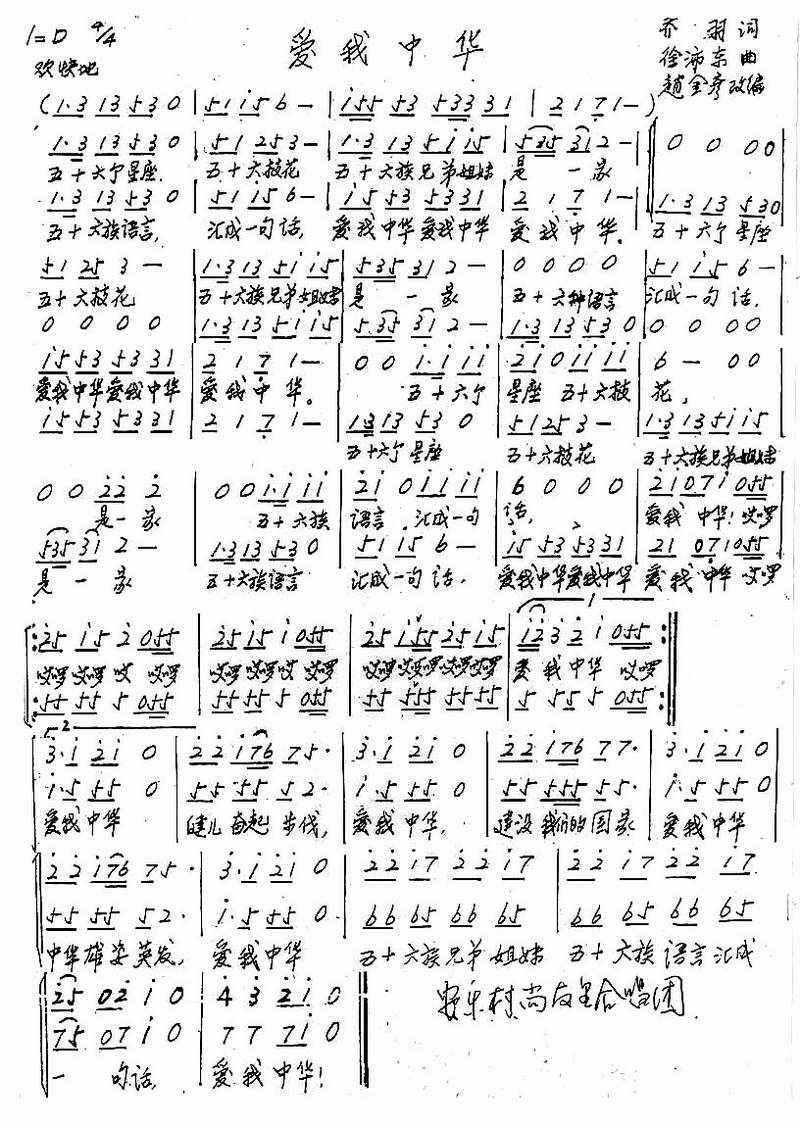 1=D 4/4
爱我中华
乔羽词
欢快地
徐沛东曲
赵金彦改编
(1·3 13 53 0 | 51 15 6 - | 155 53 533 31 | 2 1 7 1 - )
1·3 13 53 0 | 51 25 3 - | 1·3 13 51 15 | 535 31 2 - | 0 0 0 0
五十六个星座 五十六枝花 五十六族兄弟姐妹 是一家
1·3 13 53 0 | 51 15 6 - | 15 53 53 31 | 2 1 7 1 - | 1·3 13 53 0
五十六族语言, 汇成一句话, 爱我中华爱我中华 爱我中华. 五十六个星座
51 25 3 - | 1·3 13 51 15 | 535 31 2 - | 0 0 0 0 | 51 15 6 -
五十六枝花 五十六族兄弟姐妹 是一家 五十六种语言 汇成一句话,
0 0 0 0 | 1·3 13 51 15 | 535 31 2 - | 1·3 13 53 0 | 0 0 0 0
15 53 53 31 | 2 1 7 1 - | 0 0 1·1 11 | 21 0 11 11 | 6 - 0 0
爱我中华爱我中华 爱我中华。 五十六个 星座 五十六枝 花,
15 53 53 31 | 2 1 7 1 - | 13 13 53 0 | 51 25 3 - | 1·3 13 51 15
五十六个星座 五十六枝花 五十六族兄弟姐妹
0 0 22 2 | 0 0 1·1 11 | 21 0 11 11 | 6 0 0 0 | 21 07 1 055
是一家 五十六族 语言,汇成一句 话, 爱我中华!哎啰
535 31 2 - | 1·3 13 53 0 | 51 15 6 - | 15 53 53 31 | 21 07 1 055
是一家 五十六族语言 汇成一句话, 爱我中华爱我中华 爱我中华 哎啰
1
25 15 2 055 | 25 15 1 055 | 25 155 25 15 | 12 3 2 1 055
哎啰哎啰哎 哎啰 哎啰哎啰哎 哎啰 哎啰哎啰哎啰哎啰 爱我中华 哎啰
55 55 5 055 | 55 55 5 055 | 55 555 55 55 | 5 55 5 055
2
3·1 21 0 | 22 176 75· | 3·1 21 0 | 22 176 77· | 3·1 21 0
1·5 55 0 | 55 55 52· | 1·5 55 0 | 55 555 55· | 1·5 55 0
爱我中华 健儿奋起步伐, 爱我中华, 建设我们的国家 爱我中华
22 176 75· | 3·1 21 0 | 22 17 22 17 | 22 17 22 17
55 55 52· | 1·5 55 0 | 66 65 66 65 | 66 65 66 65
中华雄姿英发, 爱我中华 五十六族兄弟姐妹 五十六族语言汇成
25 02 1 0 | 4 3 21 0
75 07 1 0 | 7 7 71 0
一句话, 爱我中华!
合唱团